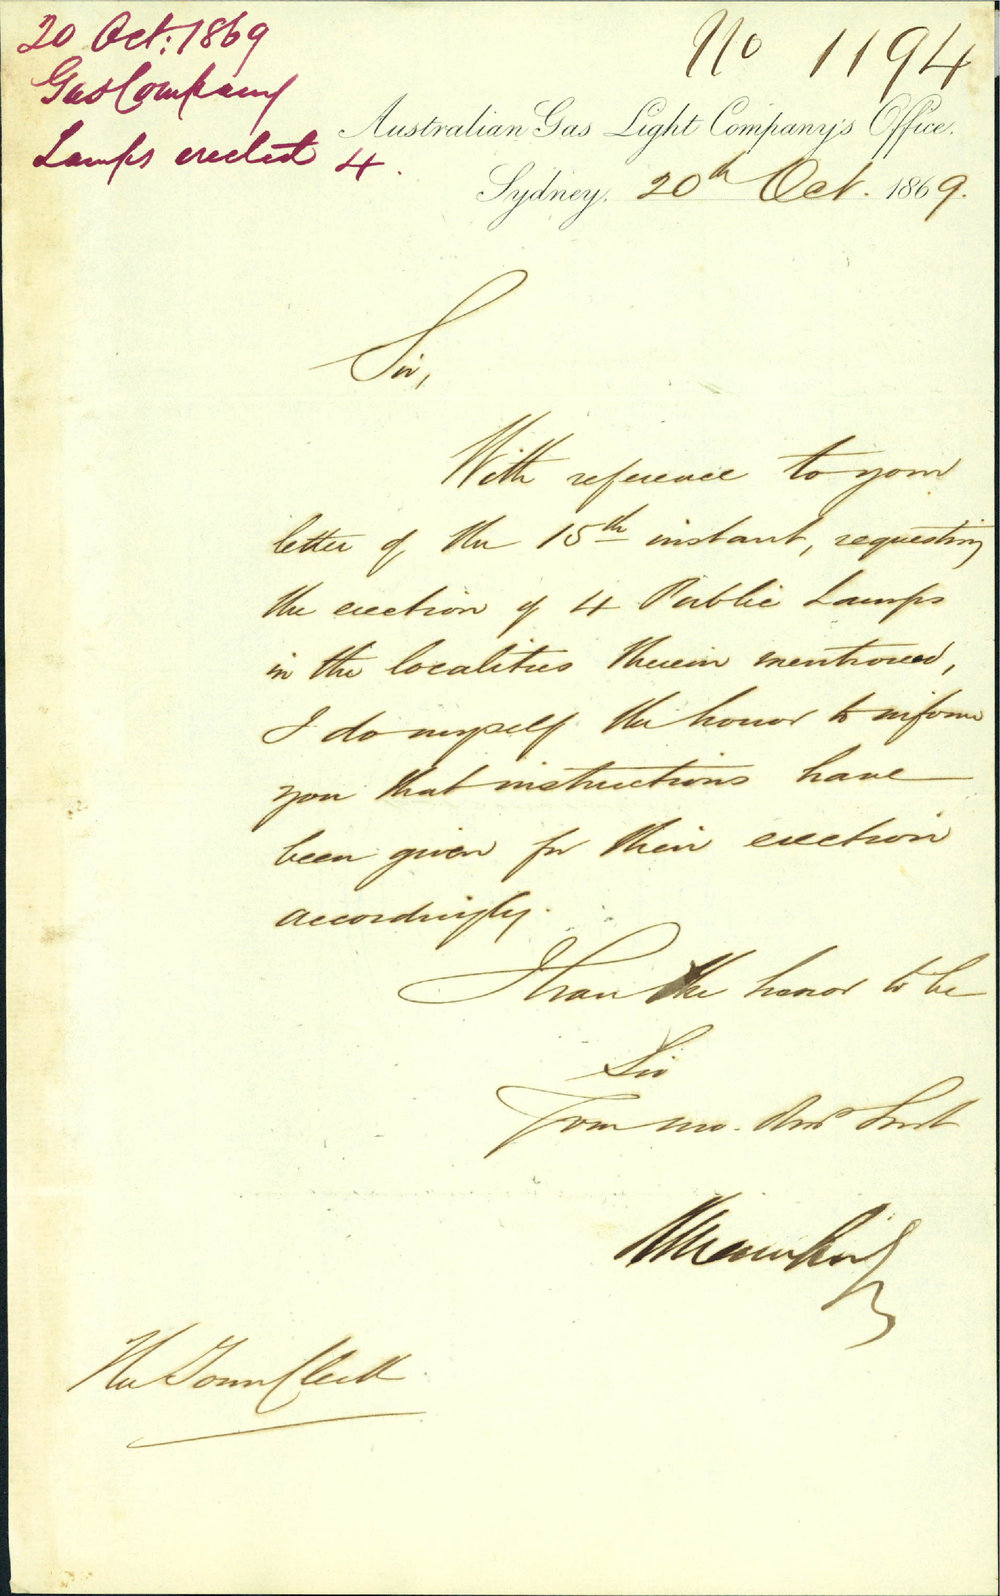 20 Oct: 1869
Gas Company
Lamps erected 4.
No 1194
Australian Gas Light Company's Office.
Sydney, 20th Oct. 1869.
Sir,
With reference to your
letter of the 15th instant, requesting
the erection of 4 Public Lamps
in the localities therein mentioned,
I do myself the honor to inform
you that instructions have
been given for their erection
accordingly.
I have the honor to be
Sir
Your mo. Obt Servt
The Town Clerk